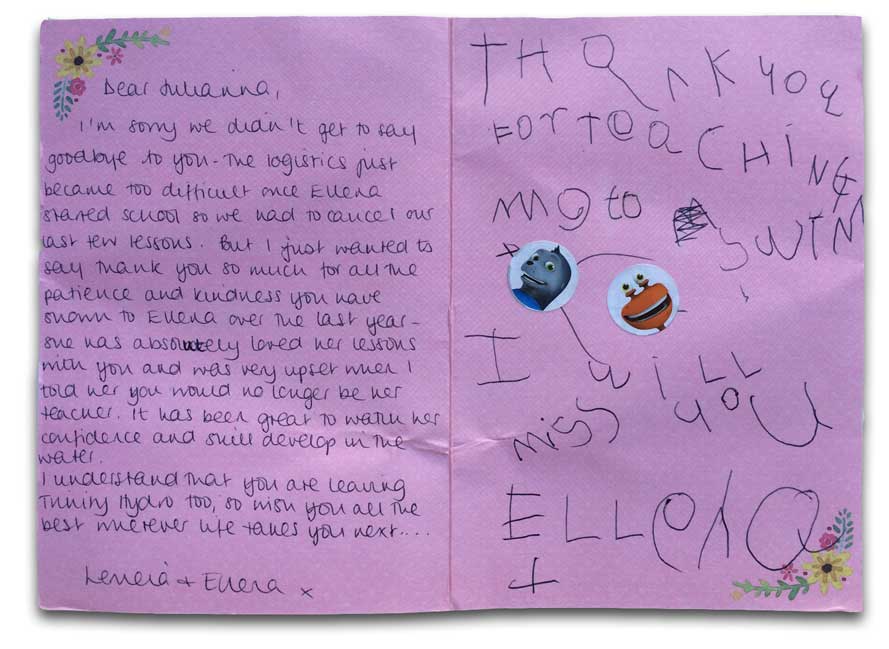 Dear Julianna,
I'm sorry we didn't get to say
goodbye to you - the logistics just
became too difficult once Ellena
started school so we had to cancel our
last few lessons. But I just wanted to
say thank you so much for all the
patience and kindness you have
shown to Ellena over the last year -
she has absolutely loved her lessons
with you and was very upset when I
told her you would no longer be her
teacher. It has been great to watch her
confidence and skill develop in the
water.
I understand that you are leaving
Hydro too, so wish you all the
best wherever life takes you next....
+ Ellena x
THANK YOU
FOR TEACHING
ME to SWIM
I WiLL
miss you
ELLENA